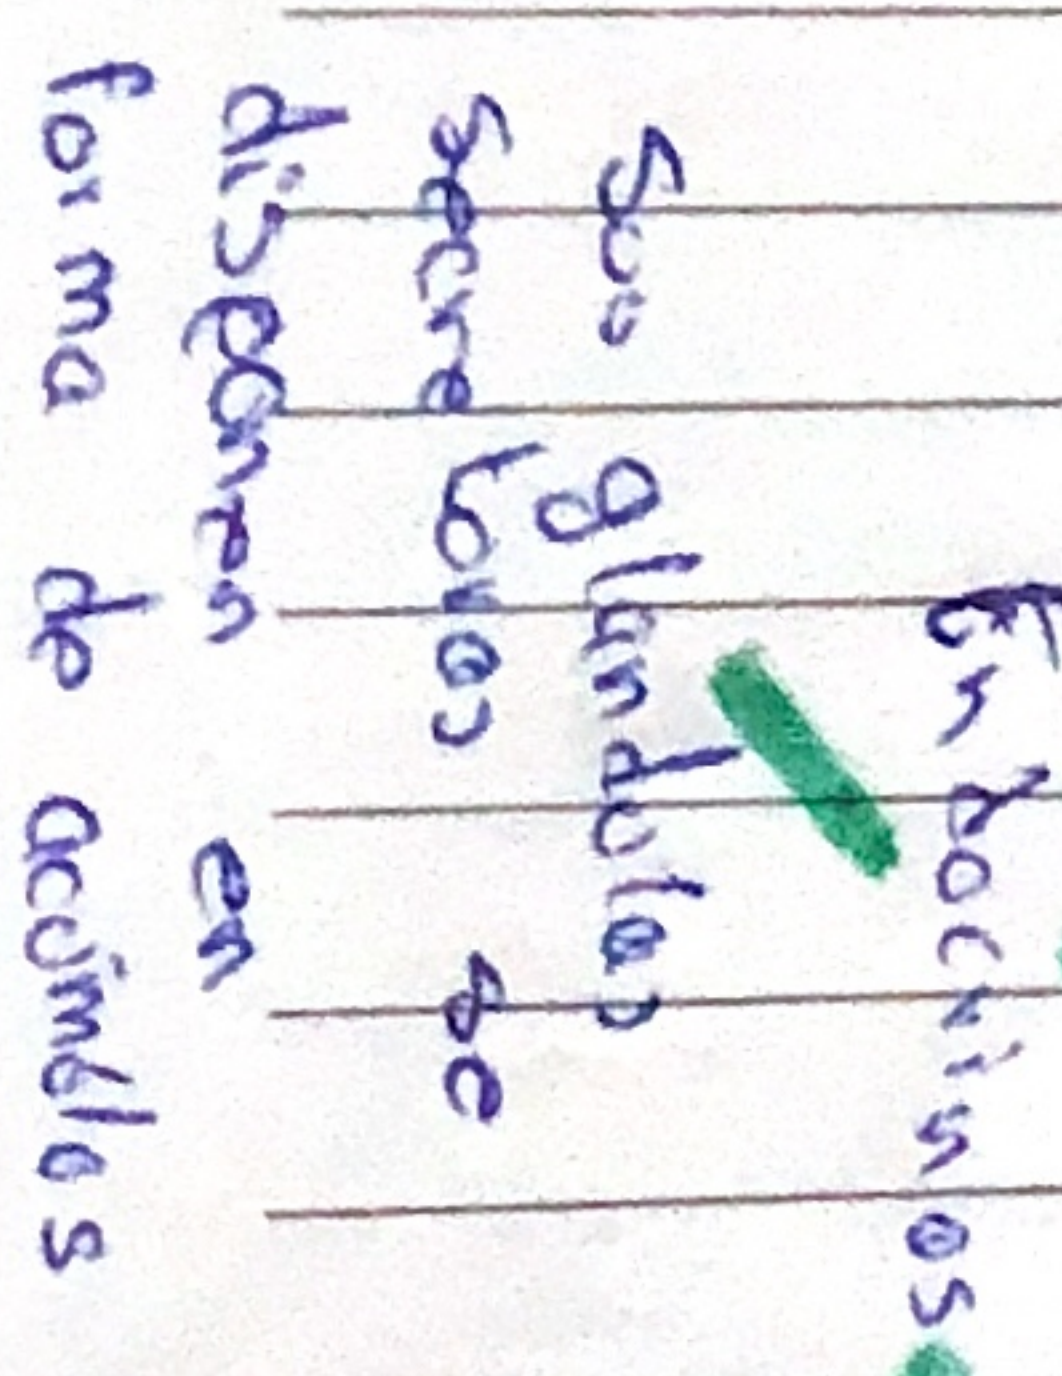 Endocrinos
Sus glandulas
secretoras se
disponen en
forma de acúmulos